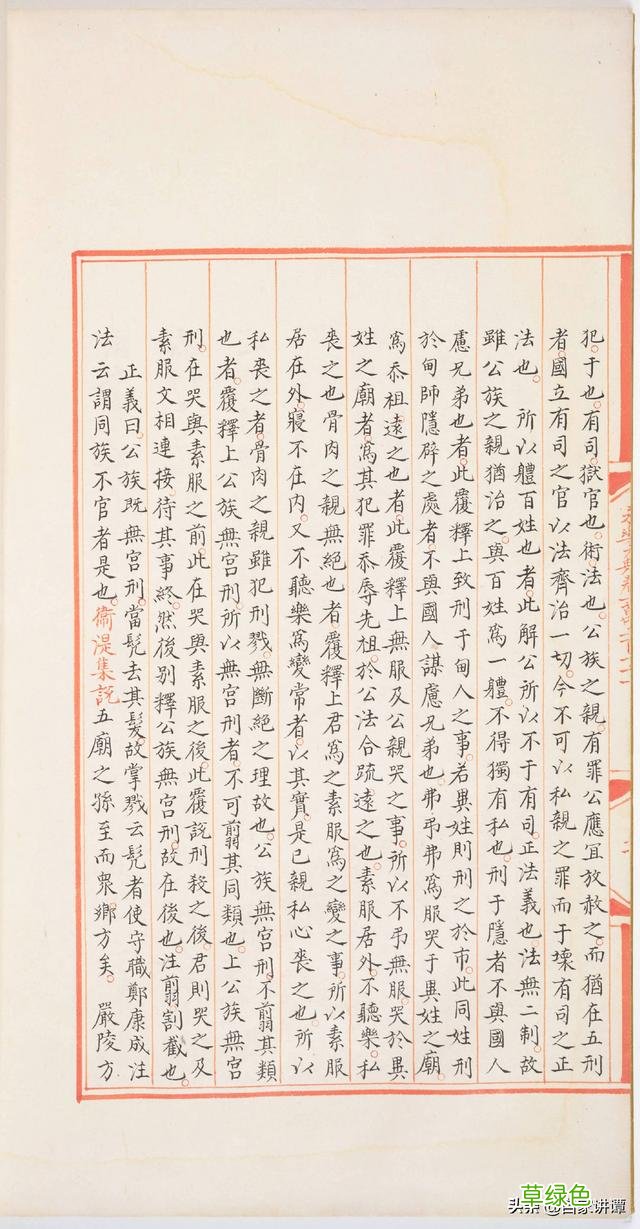 犯于也有司獄官也術法也公族之親有罪公應宜放赦之而猶在五刑
者國立有司之官以法齊治一切今不可以私親之罪而干壞有司之正
法也所以軆百姓也者此解公所以不干有司正法義也法無二制故
雖公族之親猶治之與百姓爲一軆不得獨有私也刑于隱者不與國人
慮兄弟也者此覆釋上致刑于甸人之事若異姓則刑之於市此同姓刑
於甸師隱僻之處者不與國人謀慮兄弟也弗弔弗爲服哭于異姓之廟
爲忝祖遠之也者此覆釋上無服及公親哭之事所以不弔無服哭於異
姓之廟者爲其犯罪忝辱先祖於公法合疏遠之也素服居外不聽樂私
喪之也骨肉之親無絶也者覆釋上君爲之素服爲之變之事所以素服
居在外寢不在内又不聽樂爲變常者以其實是已親私心喪之也所以
私喪之者骨肉之親雖犯刑戮無斷絶之理故也公族無宫刑不翦其類
也者覆釋上公族無宫刑所以無宫刑者不可翦其同類也上公族無宫
刑在哭與素服之前此在哭與素服之後此覆説刑殺之後君則哭之及
素服文相連接待其事終然後别釋公族無宫刑故在後也注翦割截也
正義曰公族既無宫刑當髡去其髮故掌戮云髡者使守職鄭康成注
法云謂同族不宫者是也衞湜集説五廟之孫至而衆鄉方矣嚴陵方
草绿色
头条@百家讲谭